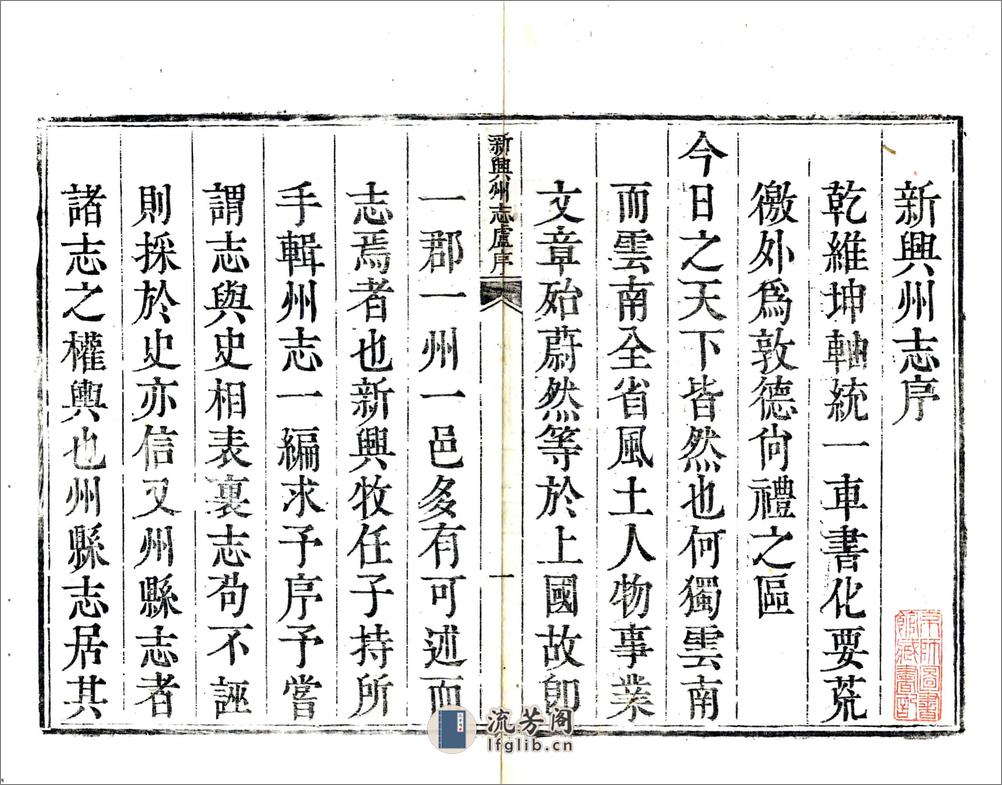 新興州志序
乾維坤軸統一車書化要荒
徼外爲敦德向禮之區
今日之天下皆然也何獨雲南
而雲南全省風土人物事業
文章殆蔚然等於上國故卽
新興州志盧序
一
一郡一州一邑多有可述而
志焉者也新興牧任子持所
手輯州志一編求予序予嘗
謂志與史相表裏志茍不誣
則採於史亦信又州縣志者
諸志之權輿也州縣志居其
京師圖書
館藏書記
流芳阁
lfglib.cn